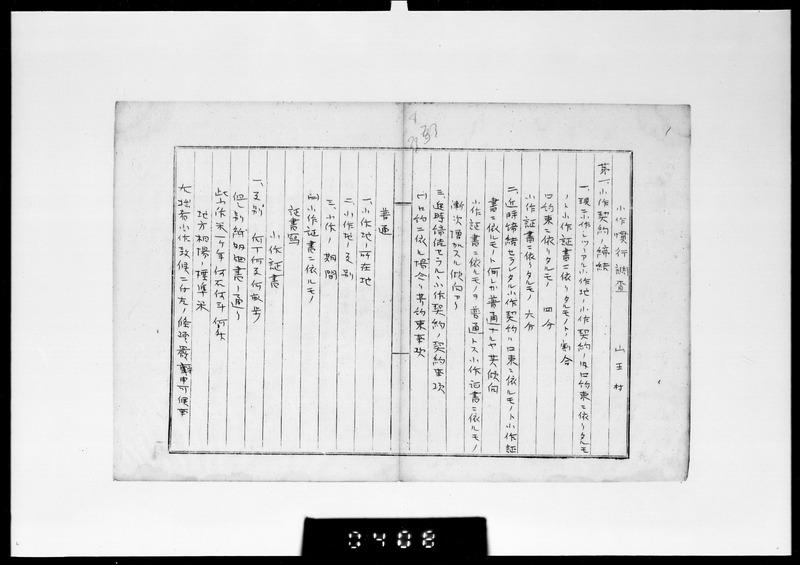 小作慣行調査　山王村
第一、小作契約ノ締結
一、現ニ小作シツヽアル小作地ノ小作契約ノ内口約束ニ依リタルモ
ノト小作証書ニ依リタルモノトノ割合
口約束ニ依リタルモノ　四分
小作証書ニ依リタルモノ　六分
二、近時締結セラレタル小作契約ハ口約束ニ依ルモノト小作証
書ニ依ルモノト何レカ普通ナルヤ其傾向
小作証書ニ依ルモノヲ普通トス小作証書ニ依ルモノ
漸次増加スル傾向アリ
三、近時締結セラルヽ小作契約ノ契約事項
(一)口約ニ依ル場合ノ其約束事項
普通
一、小作地ノ所在地
二、小作地ノ反別
三、小作ノ期間
(二)小作証書ニ依ルモノ
証書写
小作証書
一、反別　何丁何反何畝歩
但シ別紙明細書ノ通リ
此小作米一ケ年何石何斗何升
地方相場ノ標準米
右拙者小作致候ニ付左ノ條項
0408